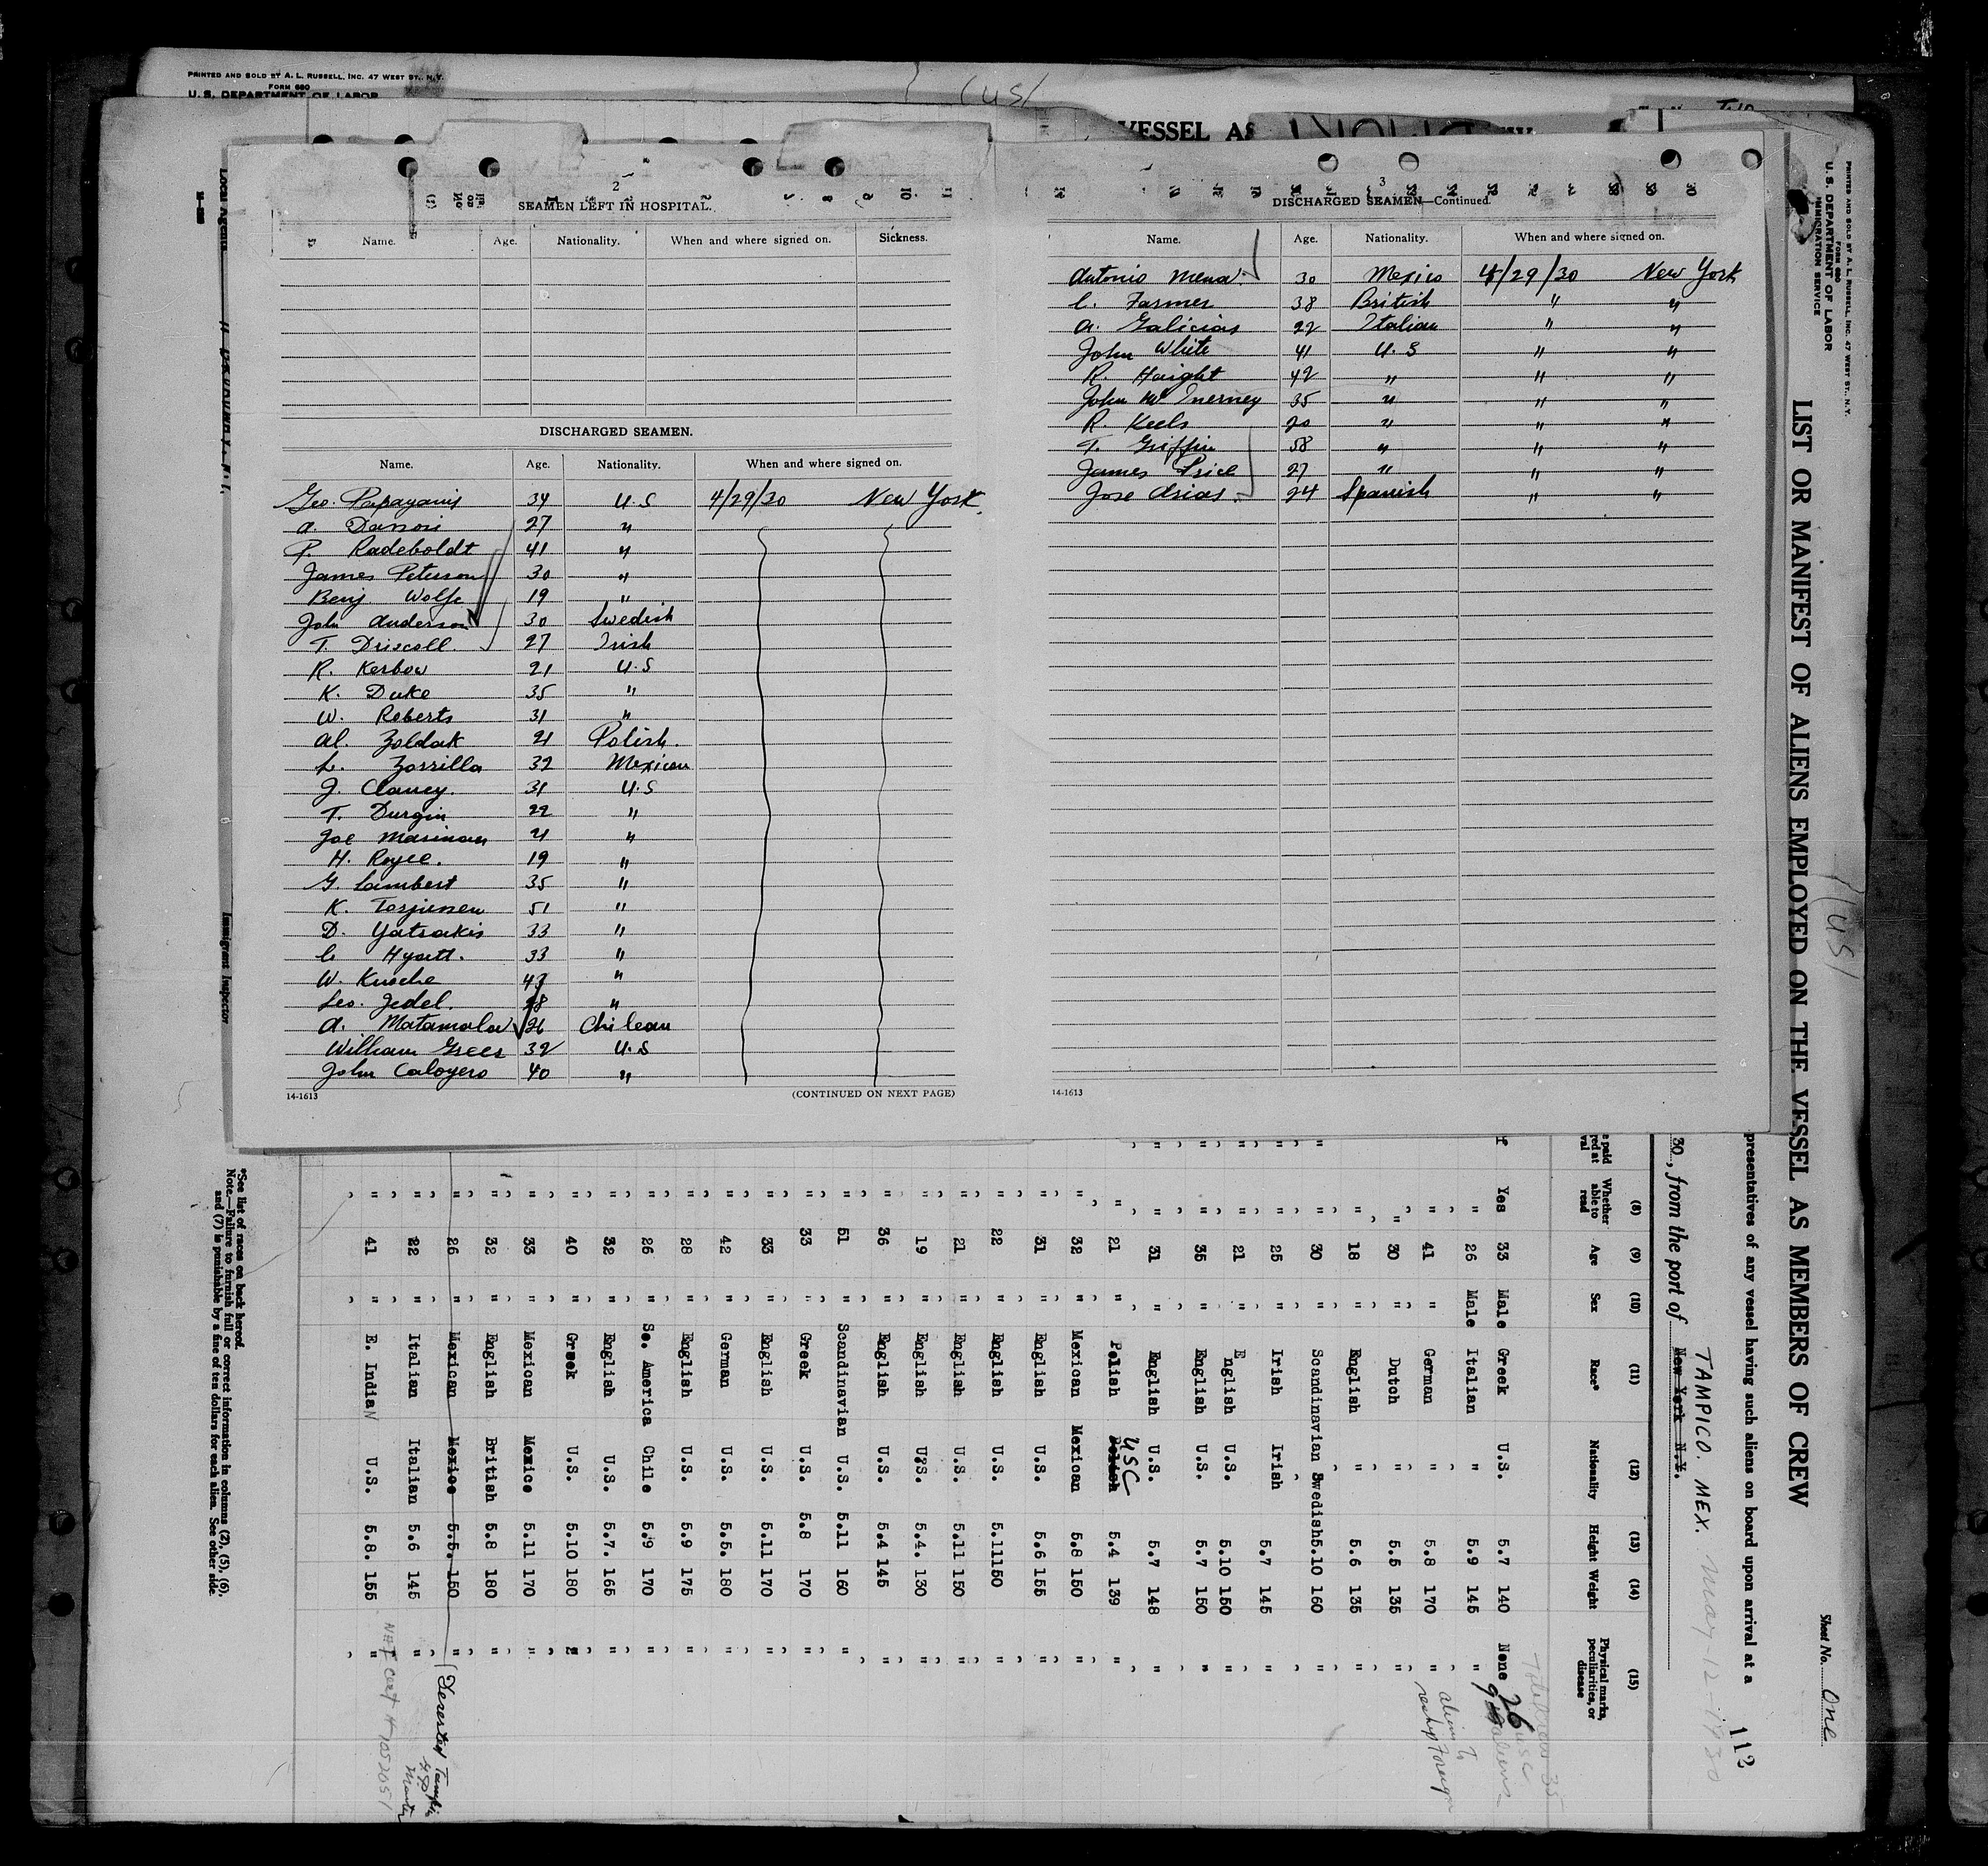 PRINTED AND SOLD BY A. L. RUSSELL, INC. 47 WEST ST., N.Y.
FORM 680
U. S. DEPARTMENT OF LABOR
(US)
VESSEL AS
2
SEAMEN LEFT IN HOSPITAL.
Name. Age. Nationality. When and where signed on. Sickness.
DISCHARGED SEAMEN.
Name. Age. Nationality. When and where signed on.
Geo. Papayanis 34 U.S 4/29/30 New York.
A. 27 "
P. Radeboldt 41 "
James Peterson 30 "
Benj Wolfe 19 "
John Anderson 30 Swedish
T. Driscoll. 27 Irish
R. Kerbow 21 U.S
K. Duke 35 "
W. Roberts 31 "
Al. Zoldak 21 Polish.
L. Zorrilla 32 Mexican
J. Clancy. 31 U.S
T. Durgin 22 "
Joe 21 "
H. Royce. 19 "
G. Lambert 35 "
K. Torjusen 51 "
D. Yatsakis 33 "
C. Hyatt. 33 "
W. Kusche 43 "
Leo. Jedel. 28 "
A. 26 Chilean
William Greer 32 U.S
John Caloyero 40 "
14-1613 (CONTINUED ON NEXT PAGE)
3
DISCHARGED SEAMEN—Continued.
Name. Age. Nationality. When and where signed on.
Antonio Mena 30 Mexico 4/29/30 New York
C. Farmer 38 British " "
A. Galicias 22 Italian " "
John White 41 U.S " "
R. Haight 42 " " "
John McInerney 35 " " "
R. Keels 20 " " "
T. Griffin 58 " " "
James Price 27 " " "
Jose Arias. 24 Spanish " "
14-1613
PRINTED AND SOLD BY A. L. RUSSELL, INC. 47 WEST ST., N.Y.
FORM 680
U. S. DEPARTMENT OF LABOR
IMMIGRATION SERVICE
LIST OR MANIFEST OF ALIENS EMPLOYED ON THE VESSEL AS MEMBERS OF CREW
Sheet No. One
(US)
presentatives of any vessel having such aliens on board upon arrival at a
112
30, from the port of New York N.Y. TAMPICO. MEX. May-12-1930
(8) (9) (10) (11) (12) (13) (14) (15)
Whether able to read Age Sex Race* Nationality Height Weight Physical marks, peculiarities, or disease
Yes 33 Male Greek U.S. 5.7 140 None
" 26 Male Italian " 5.9 145 "
" 41 " German " 5.8 170
" 30 " Dutch " 5.5 135 "
" 18 " English " 5.6 135 "
" 30 " Scandinavian Swedish 5.10 160 "
" 25 " Irish Irish 5.7 145 "
" 21 " English U.S. 5.10 150 "
" 35 " English U.S. 5.7 150 "
" 31 " English U.S. 5.7 148 "
" 21 " Polish Polish USC 5.4 139 "
" 32 " Mexican Mexican 5.8 150 "
" 31 " English U.S. 5.6 155 "
" 22 " English U.S. 5.11 150 "
" 21 " English U.S. 5.11 150 "
" 19 " English U.S. 5.4. 130 "
" 36 " English U.S. 5.4 145 "
" 51 " Scandinavian U.S. 5.11 160 "
" 33 " Greek U.S. 5.8 170 "
" 33 " English U.S. 5.11 170 "
" 42 " German U.S. 5.5. 180 "
" 28 " English U.S. 5.9 175 "
" 26 " So. America Chile 5.9 170 "
" 32 " English U.S. 5.7. 165 "
" 40 " Greek U.S. 5.10 180 "
" 33 " Mexican Mexico 5.11 170 "
" 32 " English British 5.8 180 "
" 26 " Mexican Mexico 5.5. 150 " Deserted Tampico
" 22 " Italian Italian 5.6 145 "
" 41 " E. Indian U.S. 5.8. 155 "
*See list of races on back hereof.
Note.—Failure to furnish full or correct information in columns (2), (5), (6),
and (7) is punishable by a fine of ten dollars for each alien. See other side.
Local Agents
Immigrant Inspector